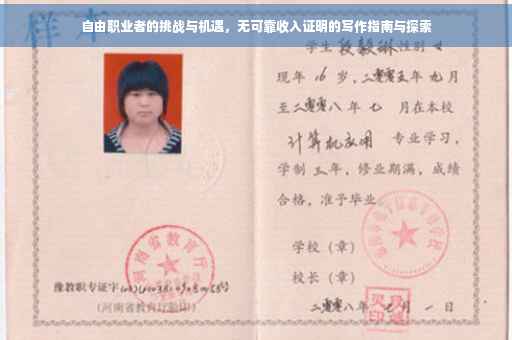 自由职业者的挑战与机遇，无可靠收入证明的写作指南与探索
样本
学生段毅琳性别女
现年16岁，二零零五年九月
至二零零八年七月在本校
计算机应用 专业学习，
学制三年，修业期满，成绩
合格，准予毕业
学校（章）
校长（章）
二零零八年七月一日
河南省教育厅
豫教职专证字
（河南省教育厅验印）